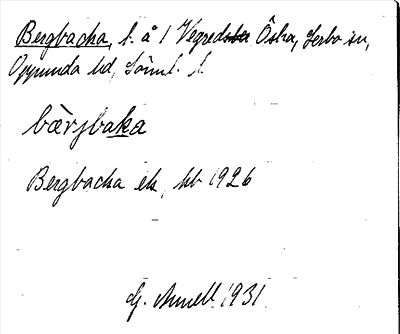 Bergbacka, l. å 1 Vegredsta Öska, Lerbo sn,
Oppunda hd, Sörml. l.
bærjbaka
Bergbacka ek, kb 1926
G. Annell 1931